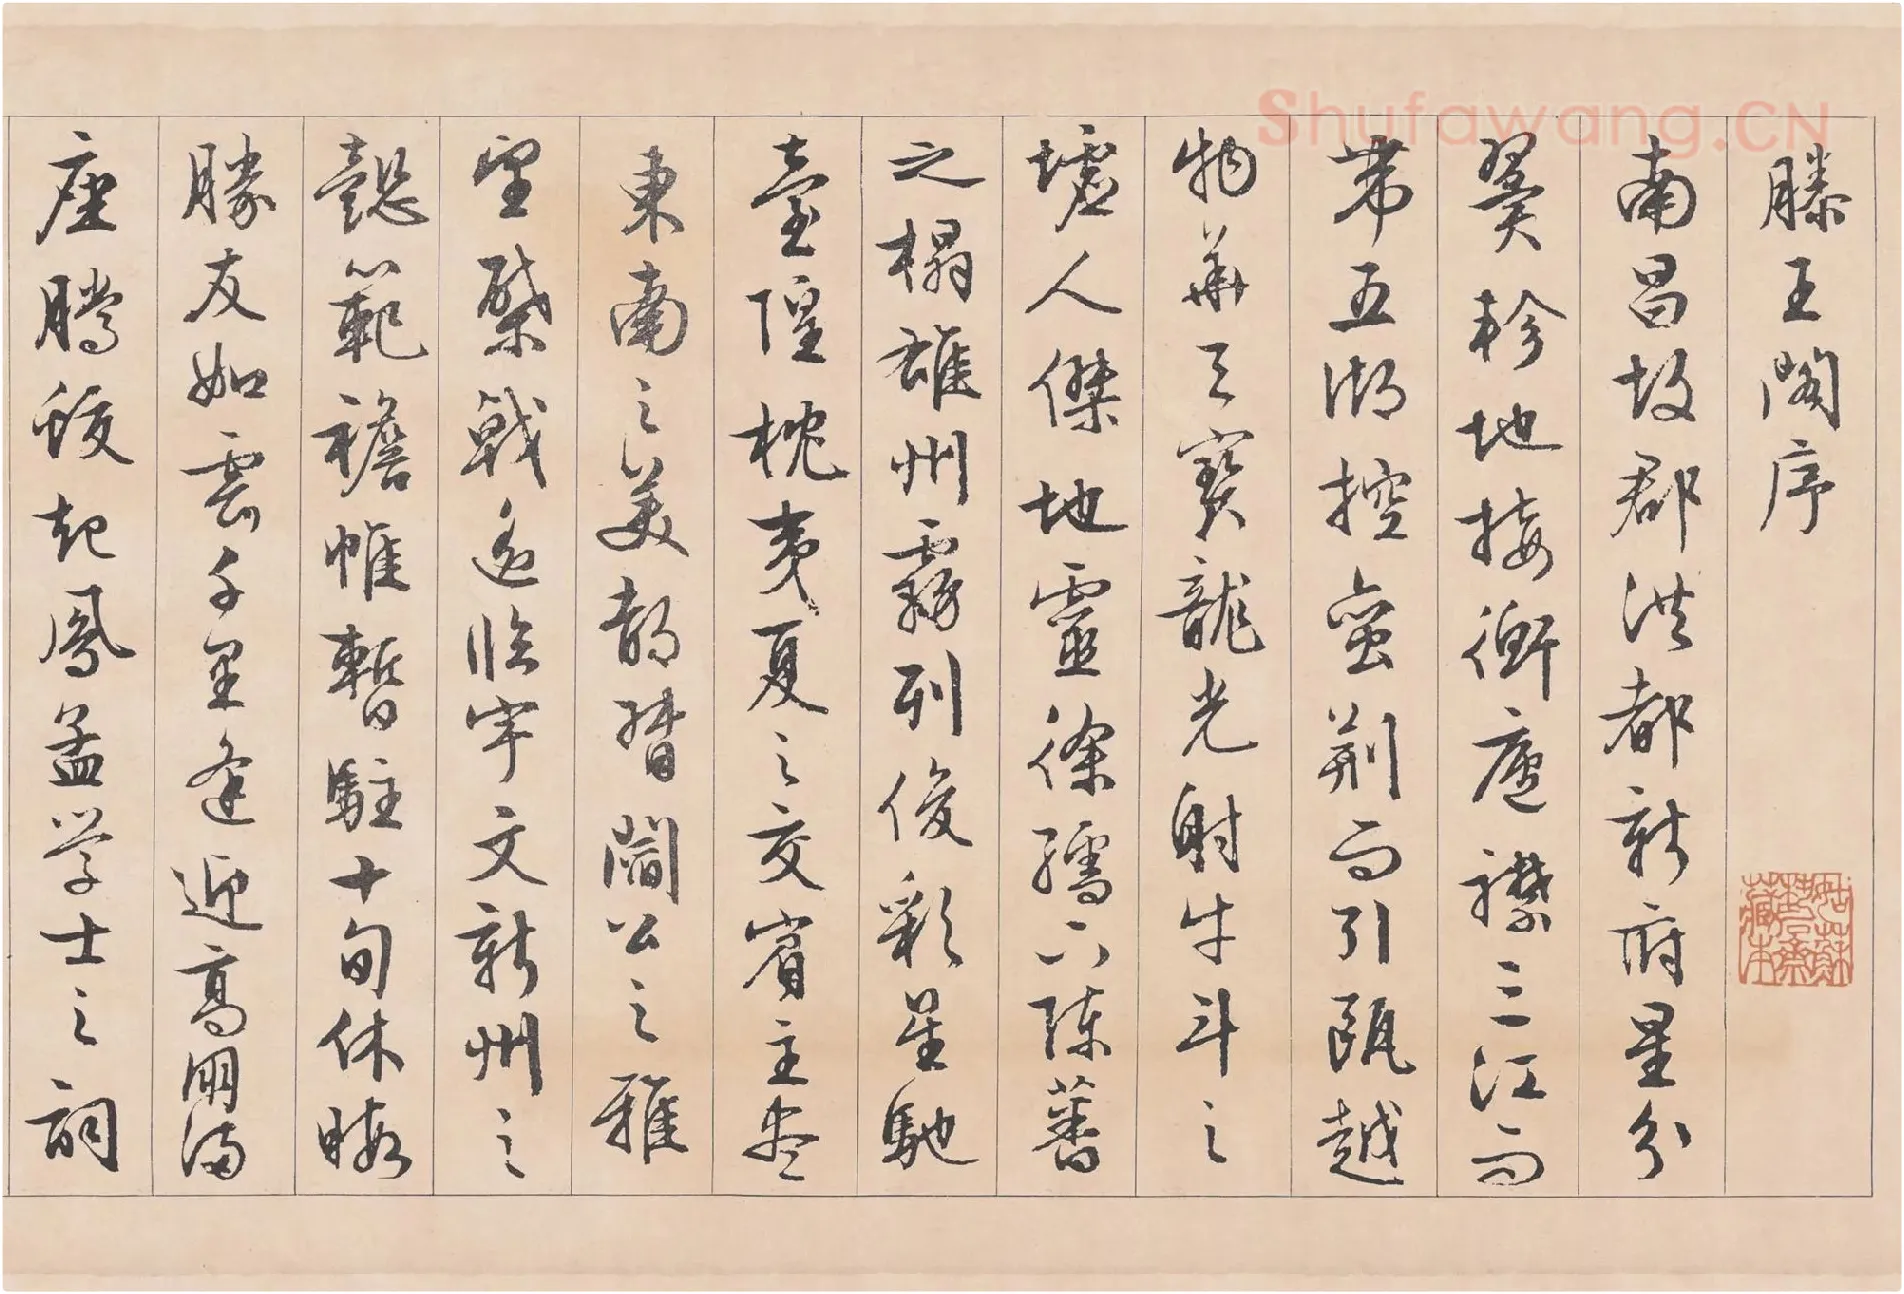 Shufawang.CN
滕王閣序
南昌故郡洪都新府星分
翼軫地接衡廬襟三江而
帶五湖控蠻荊而引甌越
物華天寶龍光射牛斗之
墟人傑地靈徐孺下陳蕃
之榻雄州霧列俊彩星馳
臺隍枕夷夏之交賓主盡
東南之美都督閻公之雅
望棨戟遙臨宇文新州之
懿範襜帷暫駐十旬休暇
勝友如雲千里逢迎高朋滿
座騰蛟起鳳孟学士之詞